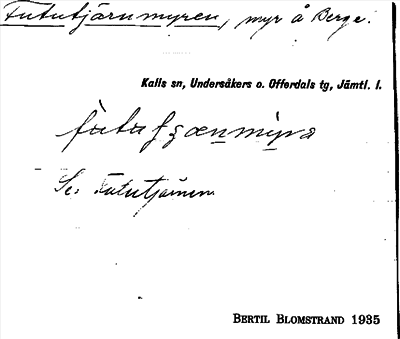 Fututjärnmyren, myr å Berge.
Kalls sn, Undersåkers o. Offerdals tg, Jämtl. l.
Se: Fututjärnen
BERTIL BLOMSTRAND 1935